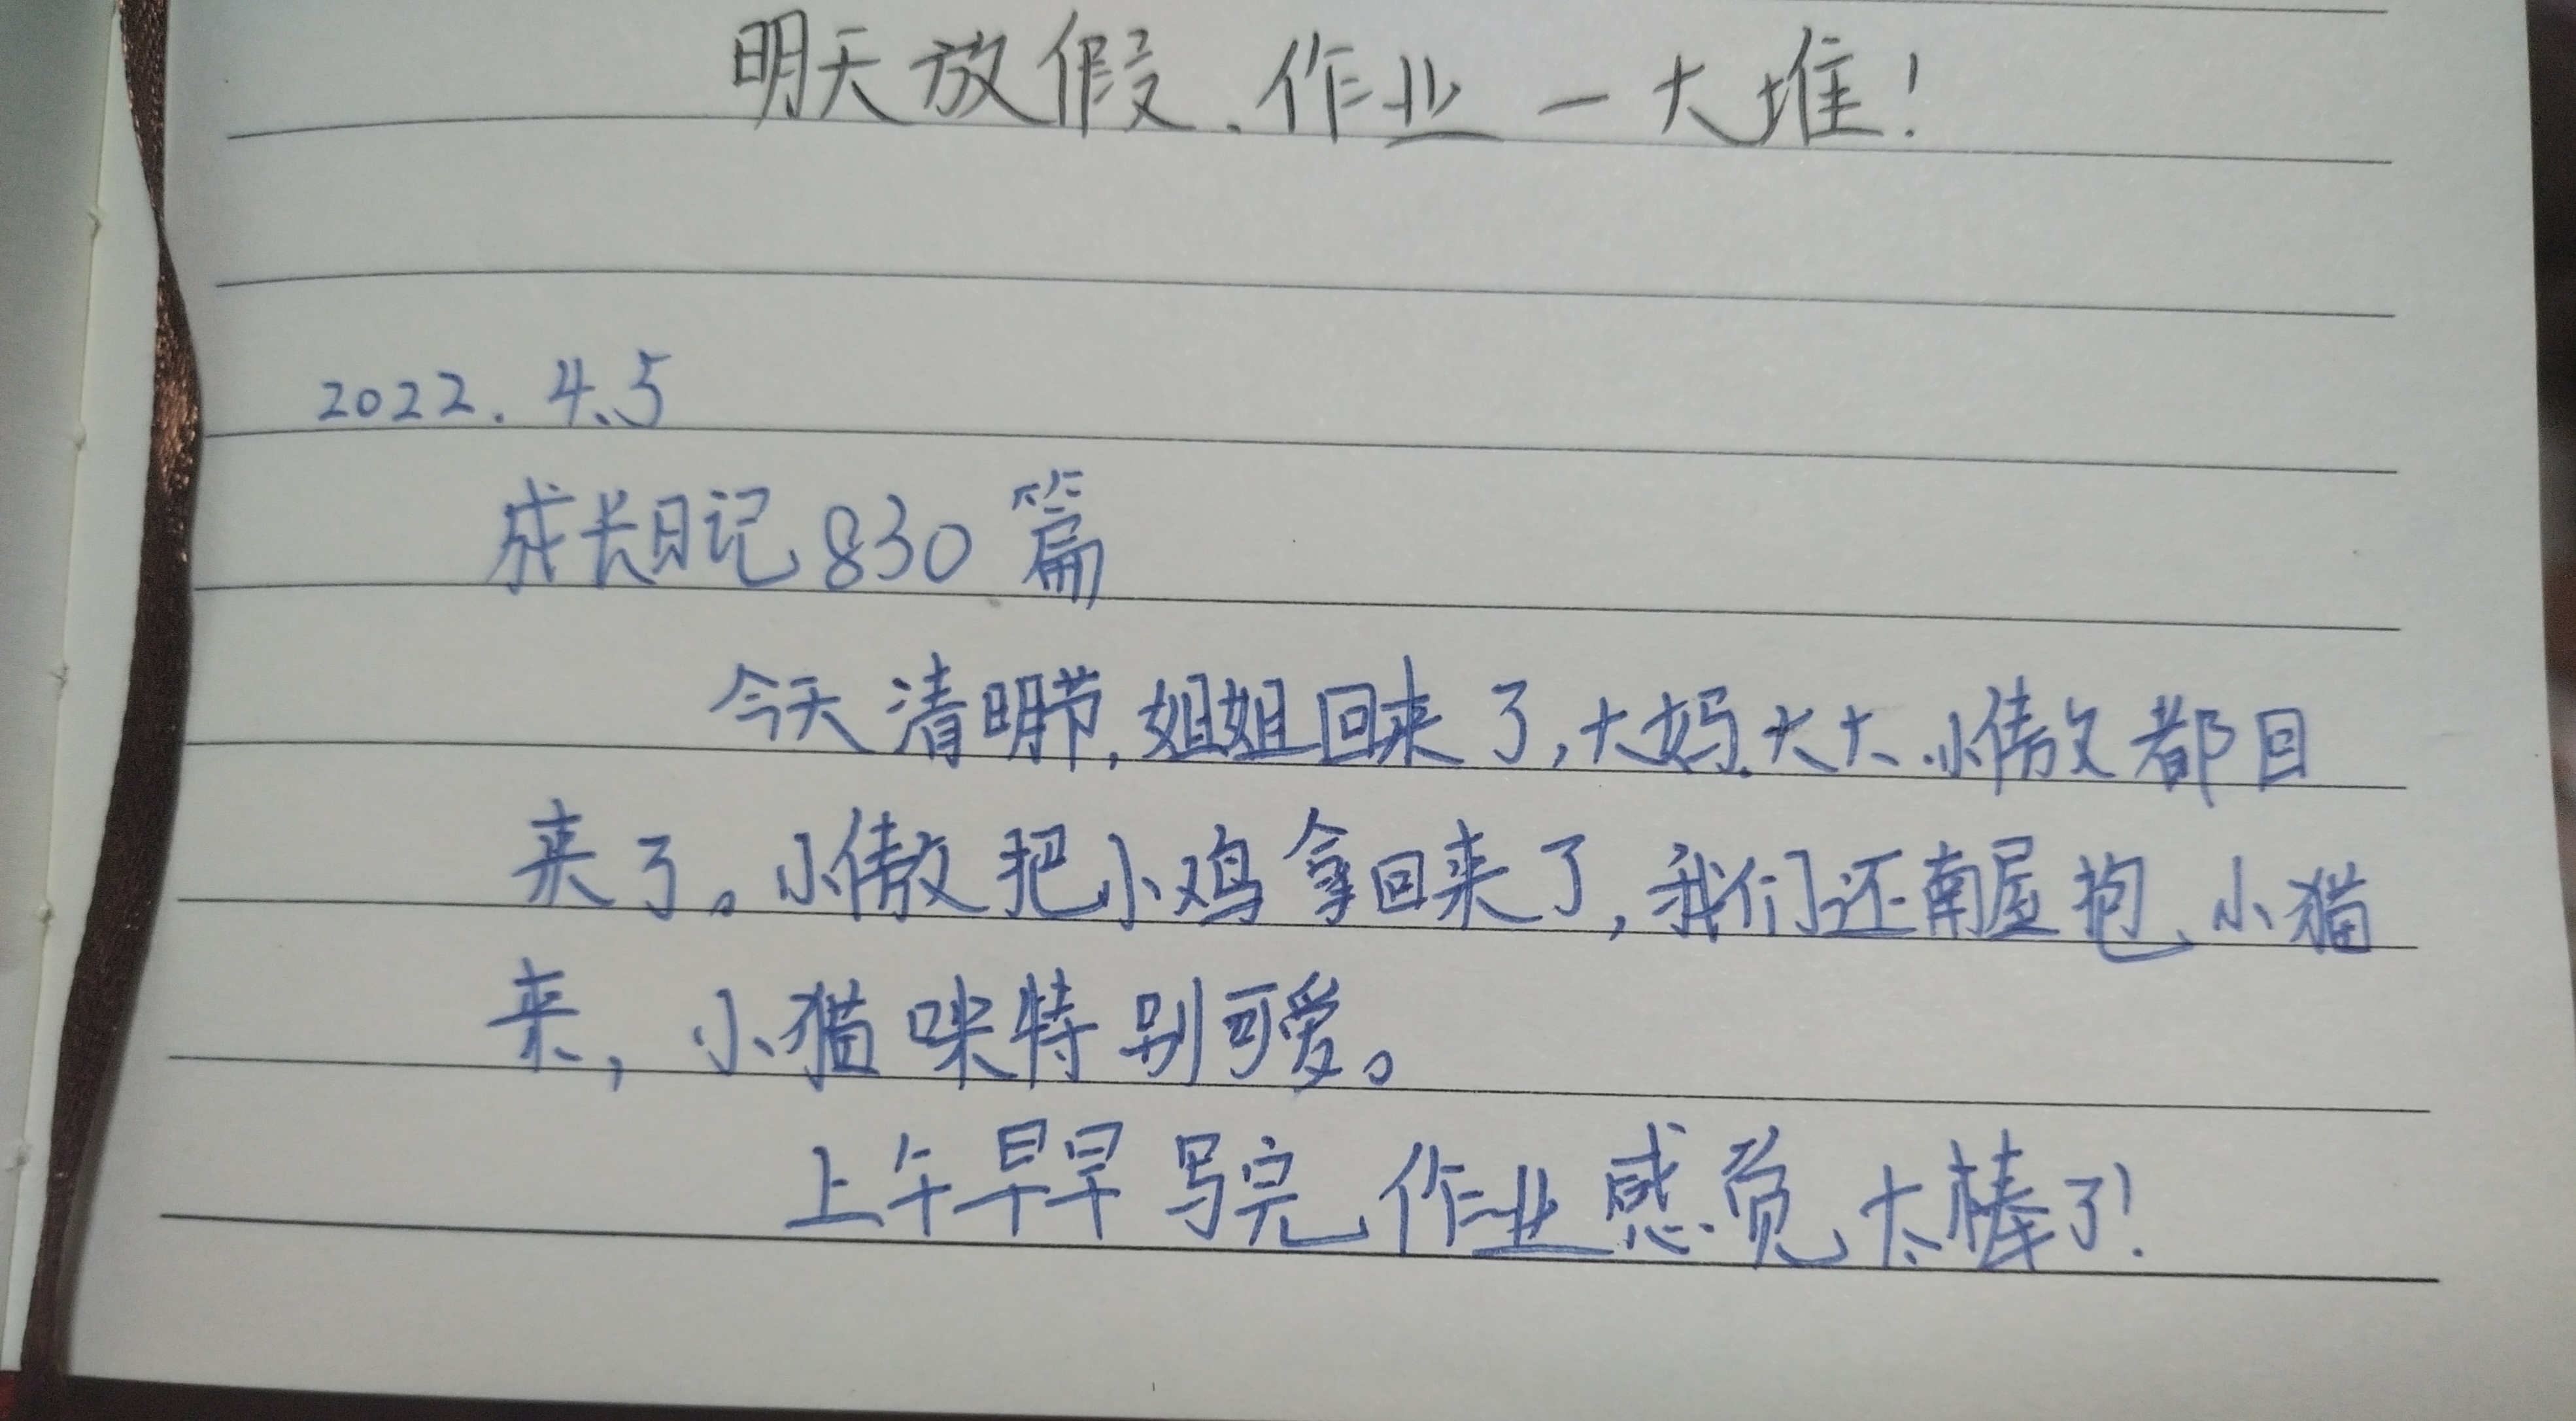 明天放假、作业一大堆!
2022. 4.5
成长日记830篇
今天清明节,姐姐回来了,大妈.大大.小傲都回
来了。小傲把小鸡拿回来了,我们还南屋抱小猫
来,小猫咪特别可爱。
上午早早写完作业感觉太棒了!